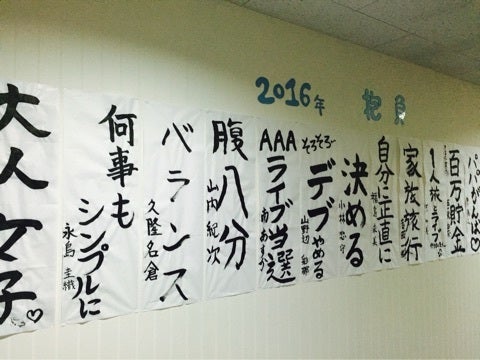 2016年 抱負
パパがんば♡
百万貯金
1人旅
家族旅行
自分に正直に
決める
そろそろ
デブやめる
AAA
ライブ当選
腹八分
山内 紀次
バランス
久隆名倉
何事も
シンプルに
永島 圭織
大人女子。♡